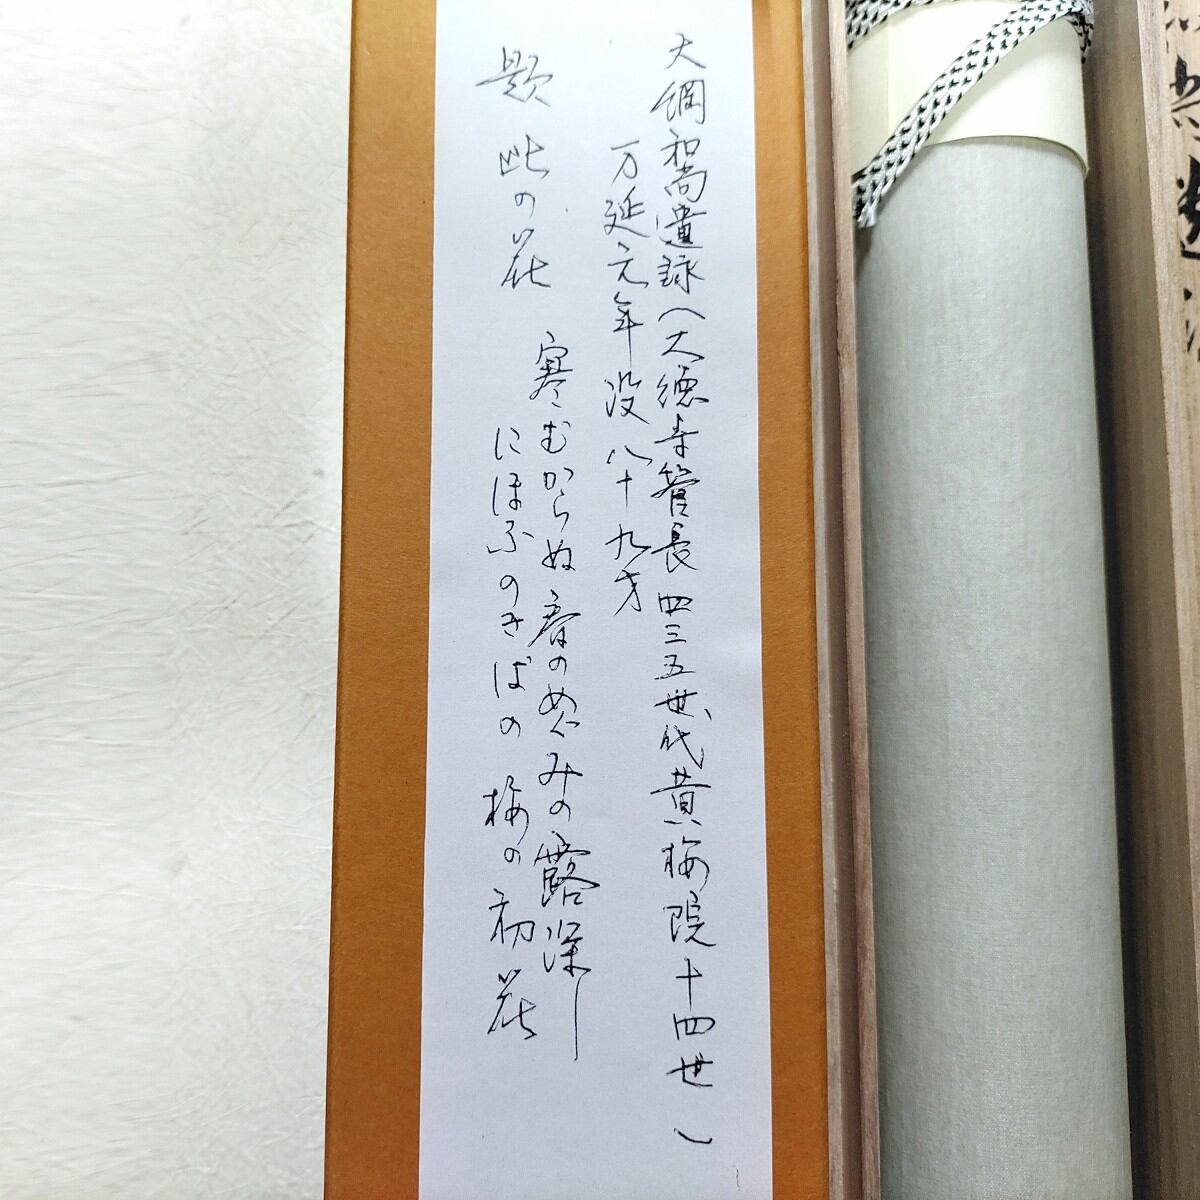 大綱和尚遺録(大徳寺管長四三五世代黄梅院十四世)
万延元年没八十九才
題 此の花
寒むからぬ春のめぐみの露深し
にほふのきばの梅の初花